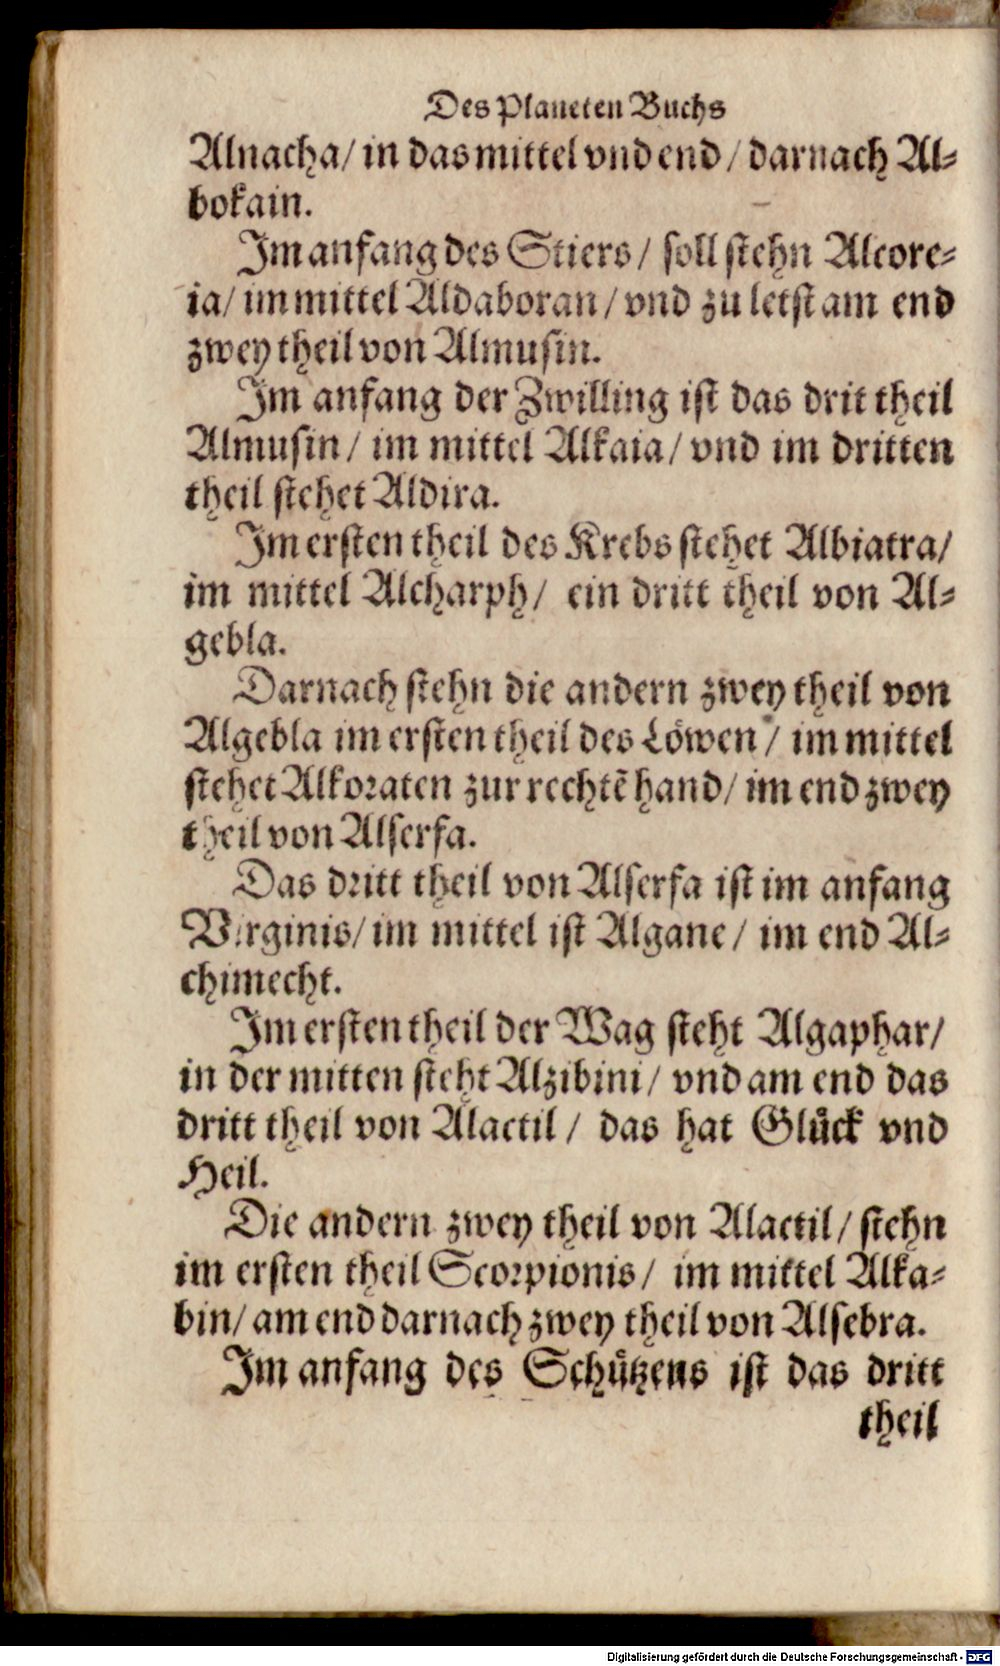 Des Planeten Buchs
Alnacha/ in das mittel vnd end/ darnach Al⸗
bokain.
Im anfang des Stiers/ soll stehn Alcore⸗
ia/ im mittel Aldaboran/ vnd zu letst am end
zwey theil von Almusin.
Im anfang der Zwilling ist das drit theil
Almusin/ im mittel Alkaia/ vnd im dritten
theil stehet Aldira.
Im ersten theil des Krebs stehet Albiatra/
im mittel Alcharph/ ein dritt theil von Al⸗
gebla.
Darnach stehn die andern zwey theil von
Algebla im ersten theil des Löwen/ im mittel
stehet Alkoraten zur rechtē hand/ im end zwey
theil von Alserfa.
Das dritt theil von Alserfa ist im anfang
Virginis/ im mittel ist Algane/ im end Al⸗
chimecht.
Im ersten theil der Wag steht Algaphar/
in der mitten steht Alzibini/ vnd am end das
dritt theil von Alactil/ das hat Glůck vnd
Heil.
Die andern zwey theil von Alactil/ stehn
im ersten theil Scorpionis/ im mittel Alka⸗
bin/ am end darnach zwey theil von Alsebra.
Im anfang des Schůtzens ist das dritt
theil
Digitalisierung gefördert durch die Deutsche Forschungsgemeinschaft - DFG